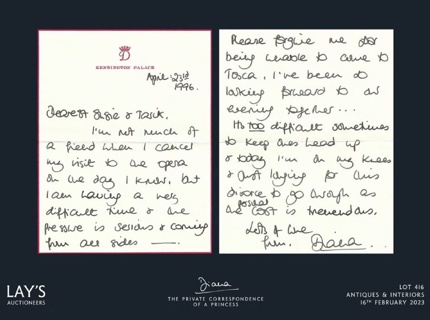 D
KENSINGTON PALACE
April 23rd
1996.
Dearest Susie & Tarik.
I'm not much of
a friend when I cancel
my visit to the opera
on the day I know, but
I am having a very
difficult time & the
pressure is serious & coming
from all sides
Please forgive me for
being unable to come to
Tosca, I've been so
looking forward to our
evening together...
It's too difficult sometimes
to keep ones head up
& today I'm on my knees
& just longing for this
divorce to go through as
the possible cost is tremendous.
Lots of love
from, Diana.
LAY'S
AUCTIONEERS
Diana
THE PRIVATE CORRESPONDENCE
OF A PRINCESS
LOT 416
ANTIQUES & INTERIORS
16TH FEBRUARY 2023